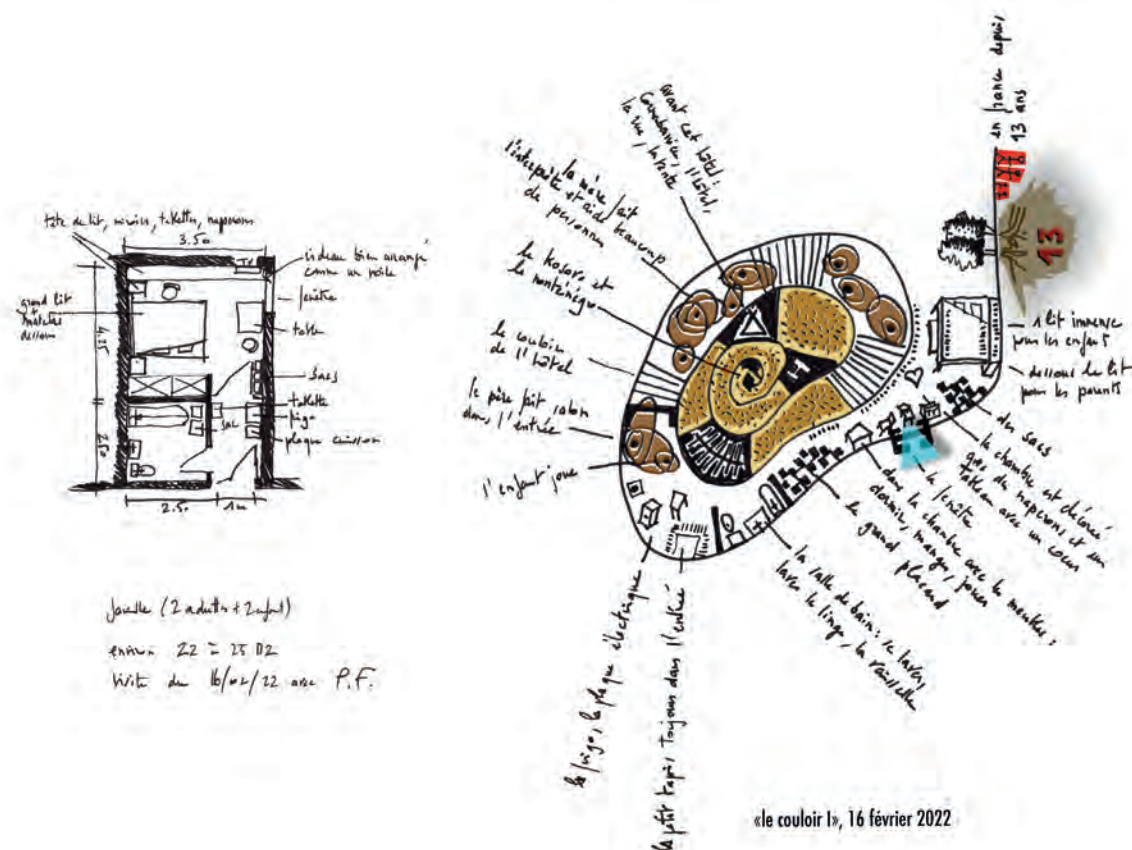 tête de lit, miroirs, tablettes, napperons
3.50
TV
rideau bien arrangé
comme un poêle
fenêtre
grand lit
+
matelas
dessous
table
4.25
sacs
tablette
frigo
plaque cuisson
sac
2.50
2.50
1m
famille (2 adultes + 2 enfants)
environ 22 à 25 m2
visite du 16/02/22 avec P.F.
avant cet hôtel :
l'hôtel,
la rue, la tente
la mère fait
l'interprète et aide beaucoup
de personnes
le Kosovo et
le monténégro
le couloir
de l'hôtel
le père fait salon
dans l'entrée
l'enfant joue
le frigo, la plaque électrique
le petit tapis toujours dans l'entrée
la salle de bain : se laver,
laver le linge, la vaisselle
le grand placard
dans la chambre avec les meubles :
dormir, manger, jouer
la fenêtre
la chambre est décorée
avec des napperons et un
tableau avec un coeur
des sacs
1 lit immense
pour les enfants
dessous le lit
pour les parents
en france depuis
13 ans
13
«le couloir I», 16 février 2022